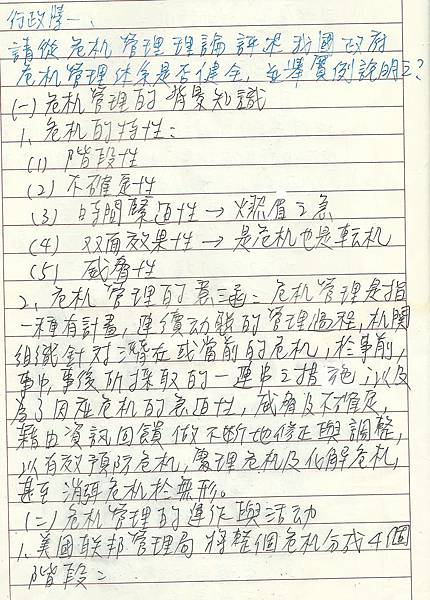 行政學一、
請從危机管理理論評述我國政府
危机管理体系是否健全,並舉實例說明之?
(一)危机管理的背景知識
1、危机的特性:
(1) 階段性
(2) 不確定性
(3) 時間緊迫性→燃眉之急
(4) 双面效果性→是危机也是転机
(5) 威脅性
2、危机管理的意涵:危机管理是指
一種有計畫,連續动態的管理過程,机関
組織針对潛在或當前的危机,於事前,
事中,事後所採取的一連串之措施,以及
為了因应危机的急迫性,威脅及不確定,
藉由資訊回饋做不断地修正與調整,
以有效預防危机,處理危机及化解危机,
甚至消弭危机於無形。
(二)危机管理的運作與活动
1、美國联邦管理局將整個危机分成4個
階段: